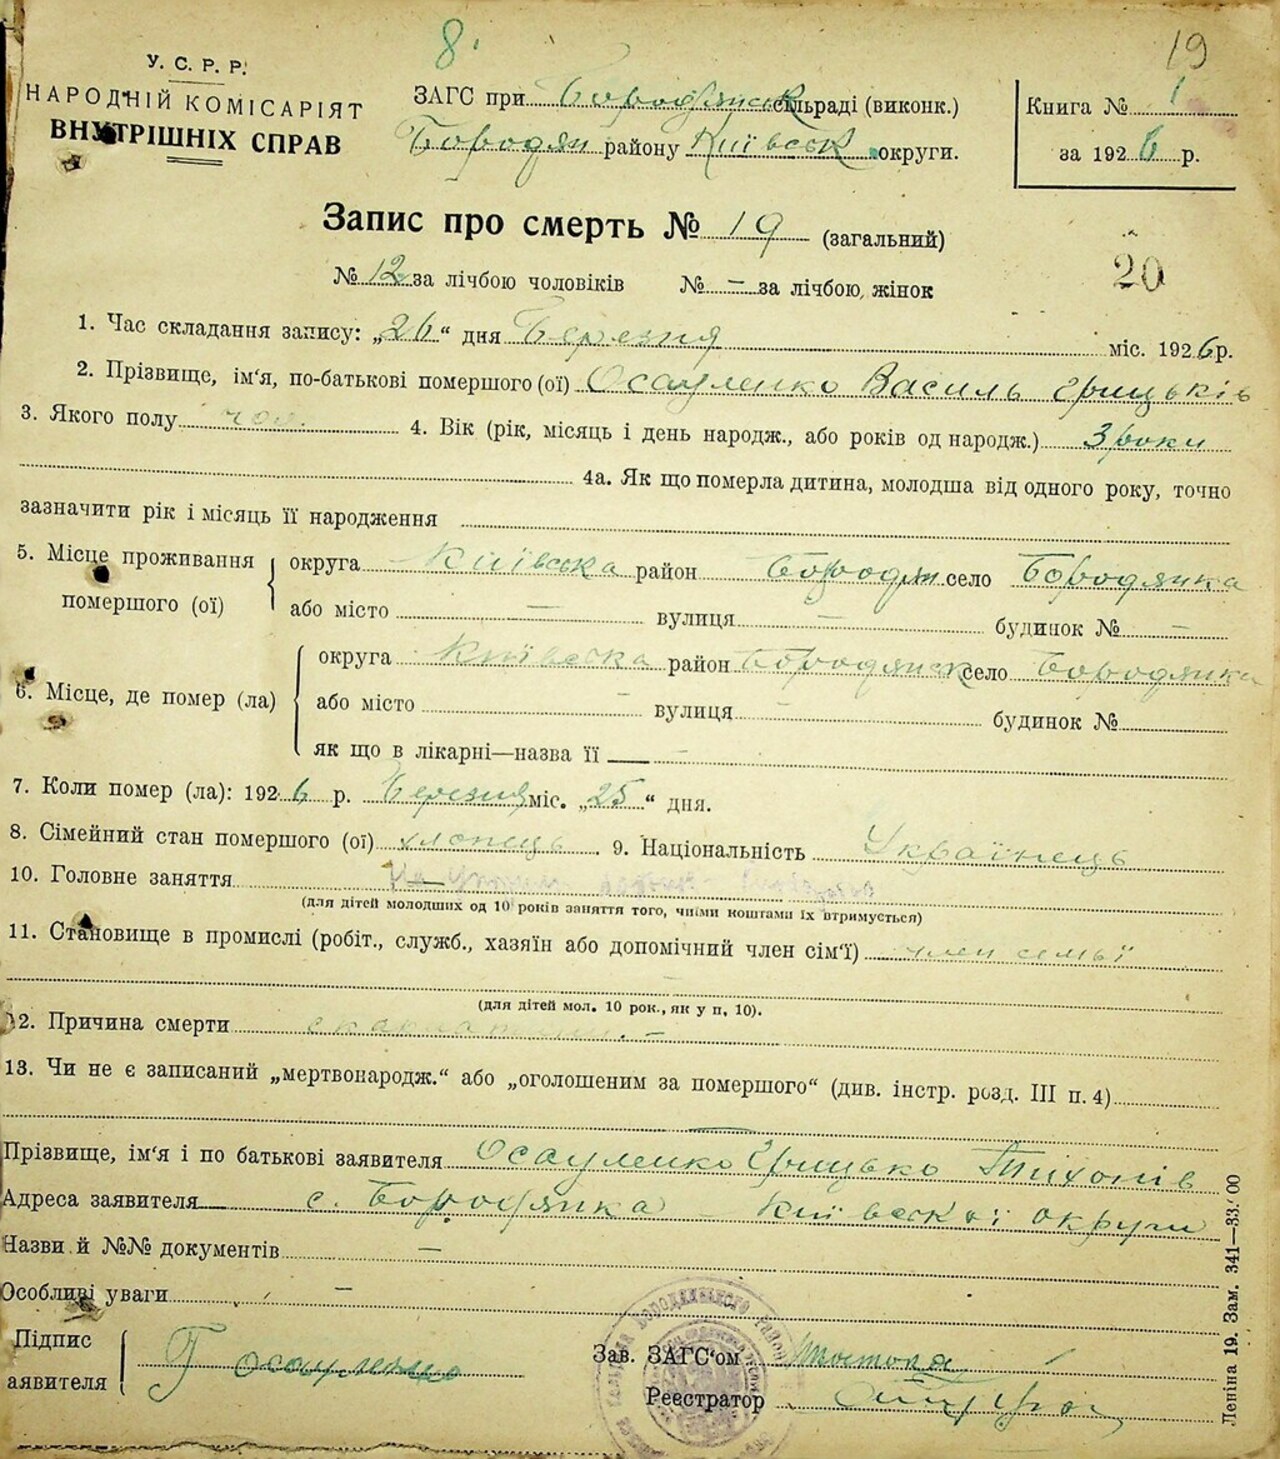 8
19
У. С. Р. Р.
НАРОДНІЙ КОМІСАРІЯТ
ВНУТРІШНІХ СПРАВ
ЗАГС при Бородянськ сільраді (виконк.)
Бородян району Київськ округи.
Книга № 1
за 1926 р.
Запис про смерть № 19 (загальний)
20
№ 12 за лічбою чоловіків № — за лічбою жінок
1. Час складання запису: „26“ дня Березня міс. 1926 р.
2. Прізвище, ім'я, по-батькові помершого (ої) Осауленко Василь Грицьків
3. Якого полу чол. 4. Вік (рік, місяць і день народж., або років од народж.) 3 роки
4а. Як що померла дитина, молодша від одного року, точно
зазначити рік і місяць її народження
5. Місце проживання помершого (ої)
округа Київська район Бородян село Бородянка
або місто — вулиця — будинок № —
6. Місце, де помер (ла)
округа Київська район Бородянск село Бородянка
або місто — вулиця — будинок №
як що в лікарні—назва її —
7. Коли помер (ла): 1926 р. Березня міс. „25“ дня.
8. Сімейний стан помершого (ої) хлопець 9. Національність Українець
10. Головне заняття
(для дітей молодших од 10 років заняття того, чиїми коштами їх втримується)
11. Становище в промислі (робіт., служб., хазяїн або допомічний член сім'ї) член семьї
(для дітей мол. 10 рок., як у п, 10).
12. Причина смерти
13. Чи не є записаний „мертвонародж.“ або „оголошеним за помершого“ (див. інстр. розд. III п. 4)
Прізвище, ім'я і по батькові заявителя Осауленко Грицько Тихонів
Адреса заявителя с. Бородянка Київської округи
Назви й №№ документів —
Особливі уваги —
Підпис заявителя Г Осауленко
Зав. ЗАГС'ом
Реєстратор
Леніна 19. Зам. 341—33.000